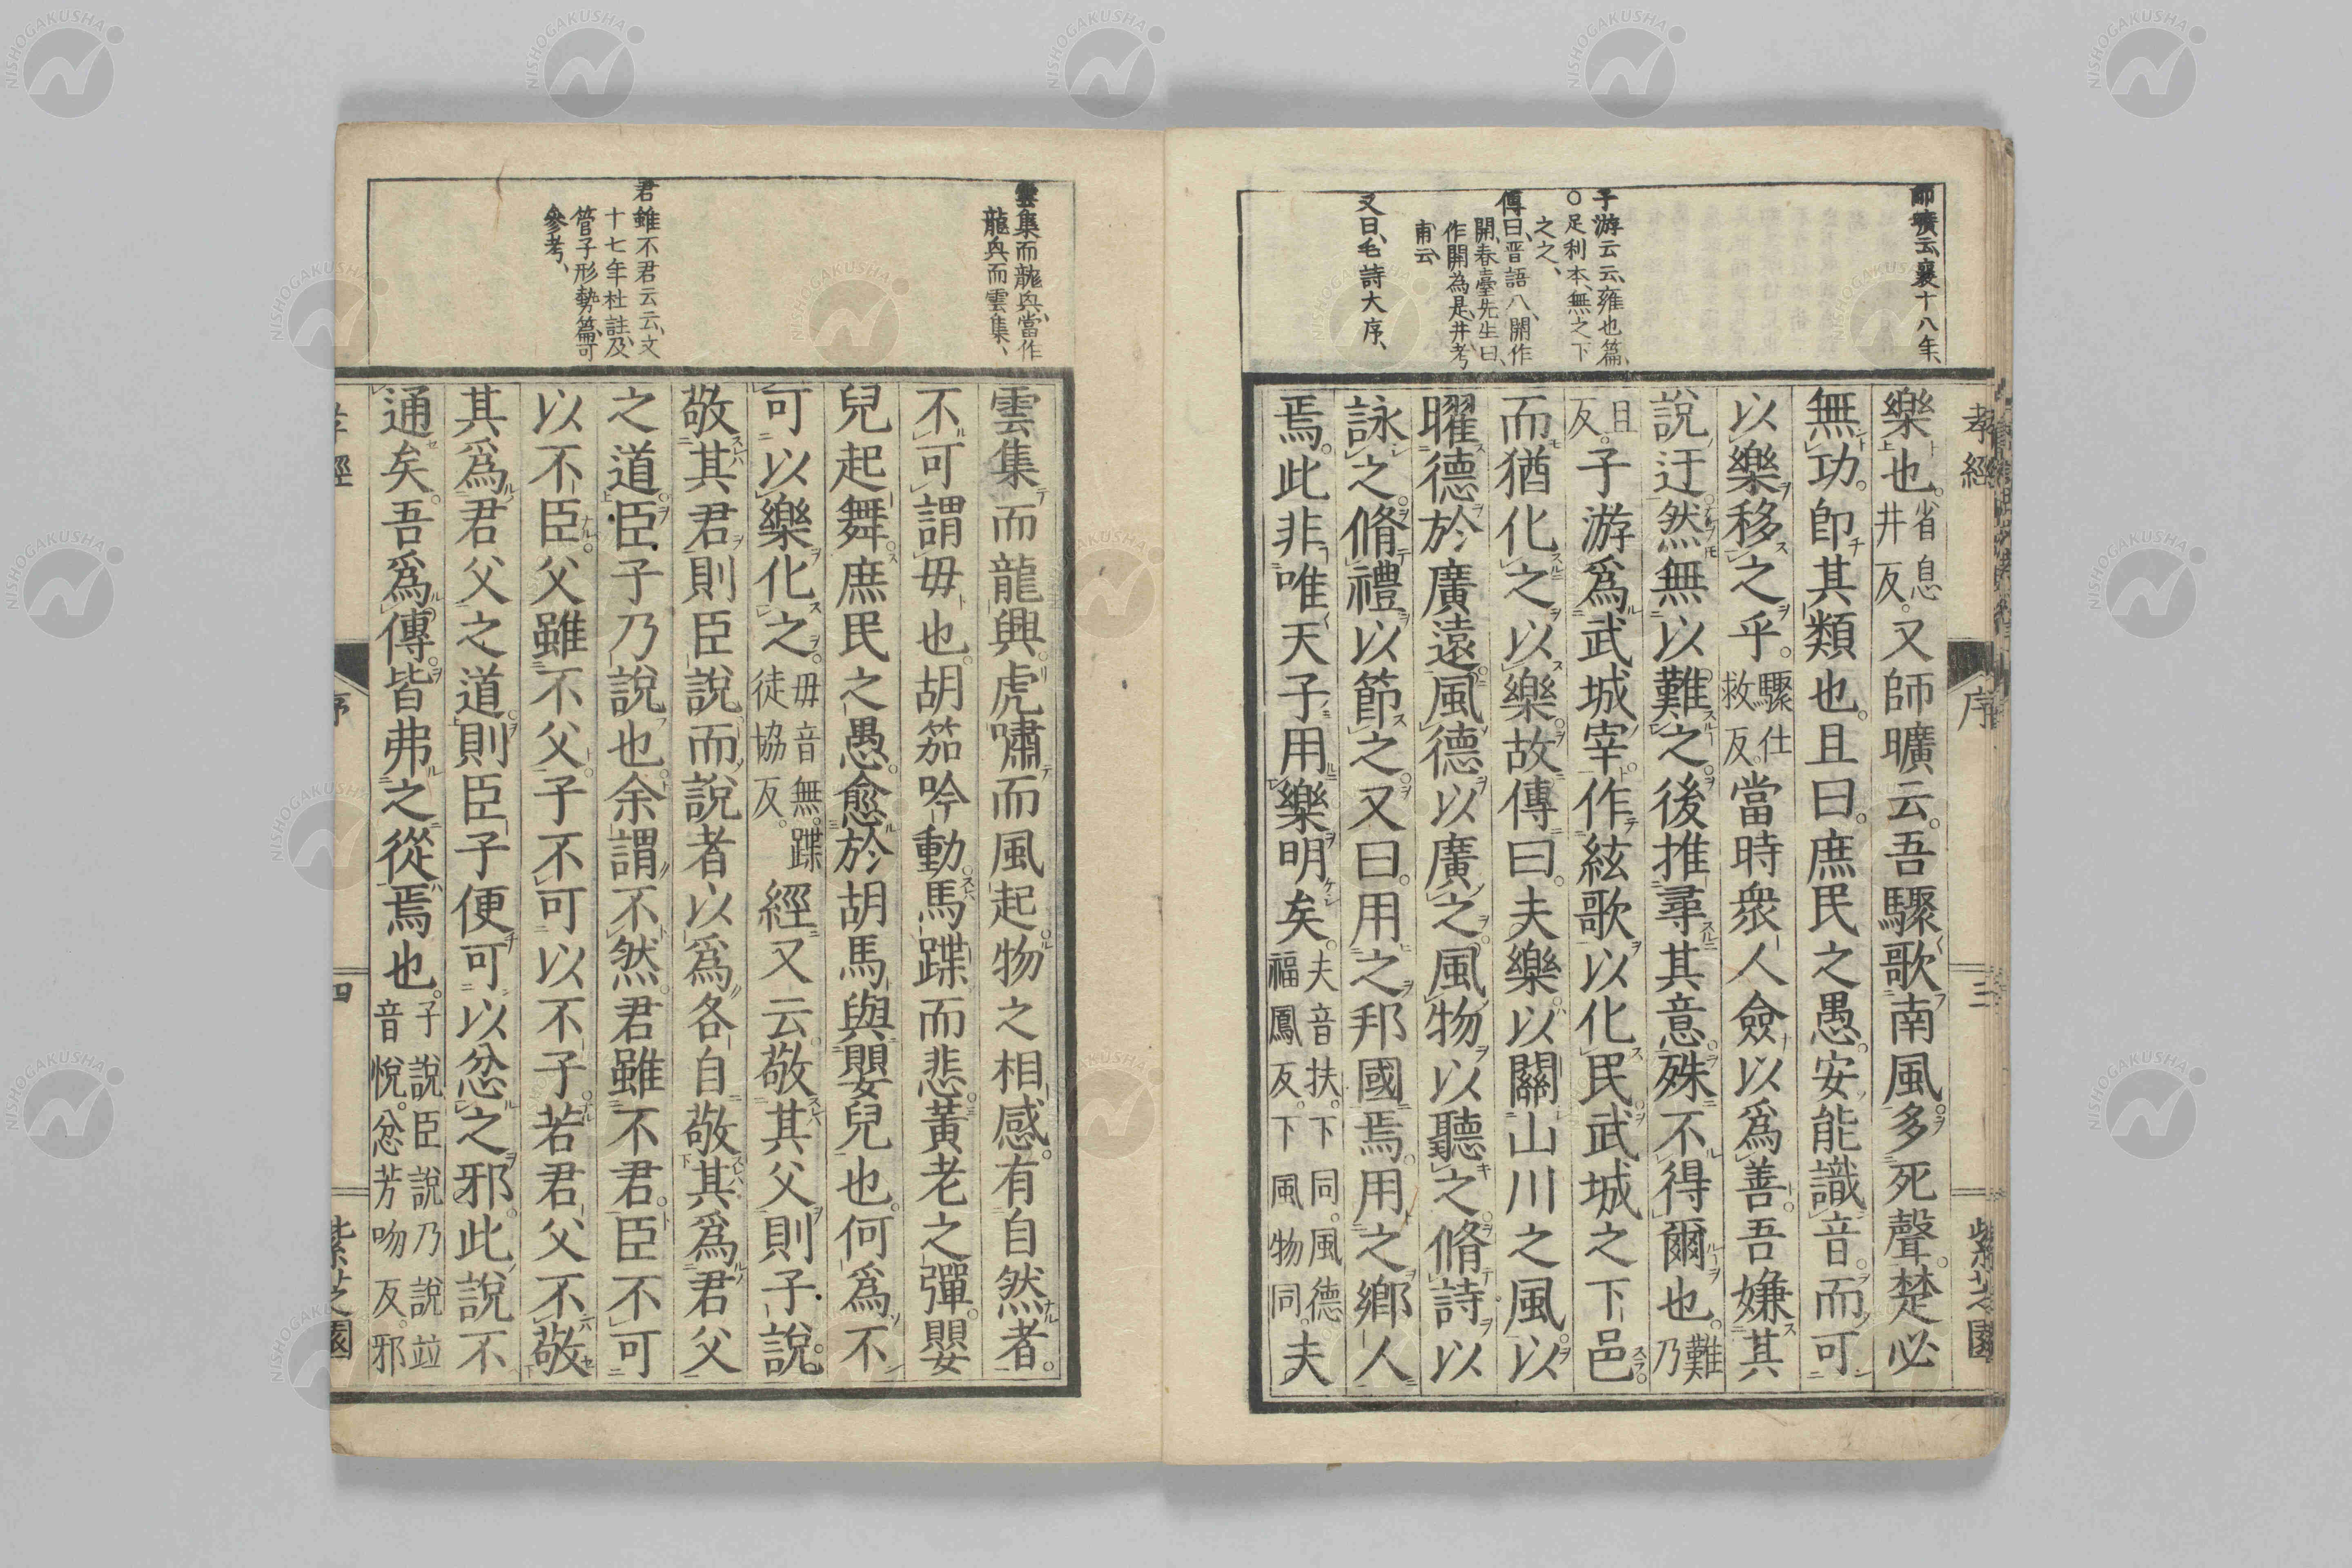 師曠云、襄十八年、
子游云云、雍也篇、
○足利本、無之下
之之、
傳曰、晋語八、開作
開、春臺先生曰、
作開為是、井考
甫云、
又曰、毛詩大序、
孝經
序
三
紫芝園
樂也。省息井反。又師曠云。吾驟歌南風。多死聲。楚必
無功。卽其類也。且曰。庶民之愚。安能識音。而可
以樂移之乎。驟仕救反。當時衆人僉以爲善。吾嫌其
說迂。然無以難之。後推尋其意。殊不得爾也。難乃
且反。子游爲武城宰。作絃歌以化民。武城之下邑。
而猶化之以樂。故傳曰。夫樂以關山川之風。以
曜德於廣遠。風德以廣之。風物以聽之。脩詩以
詠之。脩禮以節之。又曰。用之邦國焉。用之鄉人
焉。此非唯天子用樂明矣。夫音扶。下同。風德福鳳反。下風物同。夫
雲集而龍興、當作
龍興而雲集、
君雖不君云云、文
十七年杜註、及
管子形勢篇、可
參考、
雲集而龍興。虎嘯而風起。物之相感。有自然者。
不可謂毋也。胡笳吟動。馬蹀而悲。黃老之彈。嬰
兒起舞。庶民之愚。愈於胡馬與嬰兒也。何爲不
可以樂化之。毋音無。蹀徒協反。經又云。敬其父則子說。
敬其君則臣說。而說者以爲各自敬其爲君父
之道。臣子乃說也。余謂不然。君雖不君。臣不可
以不臣。父雖不父。子不可以不子。若君父不敬
其爲君父之道。則臣子便可以忿之邪。此說不
通矣。吾爲傳。皆弗之從焉也。子說臣說乃說竝音悅。忿芳吻反。邪
孝經
序
四
紫芝園